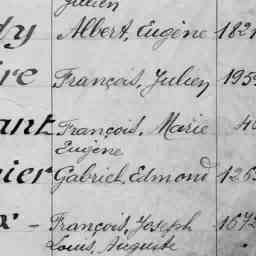 Julien
dy Albert, Eugène 1821
ire François, Julien 195
ant François, Marie 40
Eugène
nier Gabriel, Edmond 126
x - François, Joseph 1672
Louis, Auguste